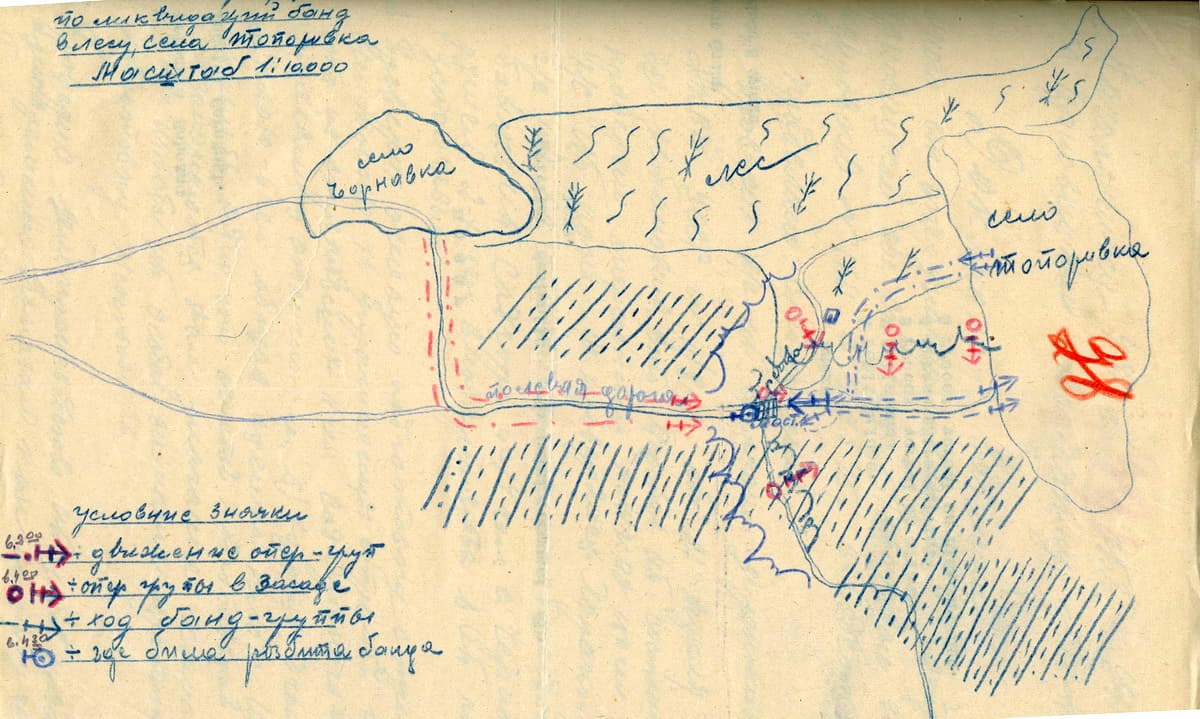 по ликвидаций банд
в лесу, села Топоривка
Масштаб 1:10.000
село
Чорнавка
лес
село
Топоривка
полевая дарога
мост.
условние значки
в. 2 00
÷ движение опер-груп
в. 4 00
÷ опер групы в Засаде
÷ ход банд-группы
в. 4 30
÷ где била розбита банда